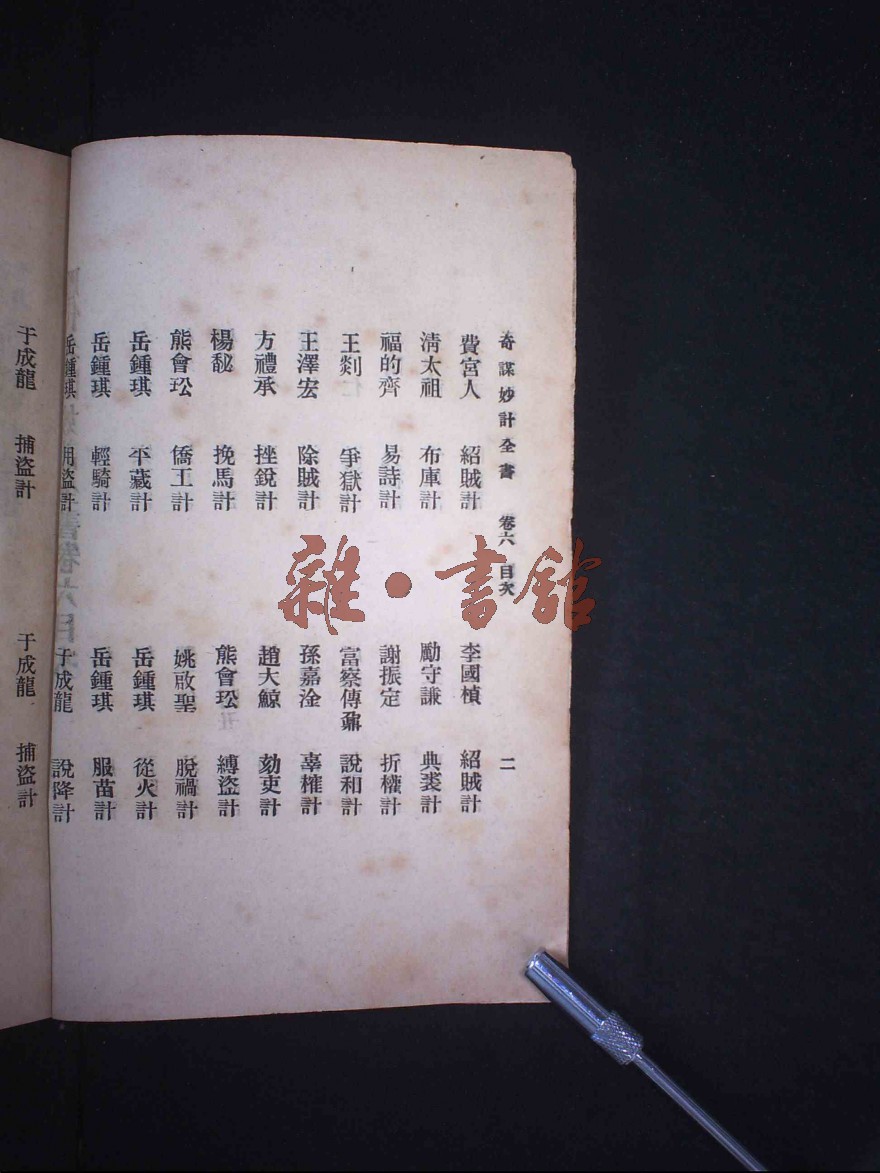 奇謀妙計全書 卷六 目次 二
費宮人 紹賊計 李國楨 紹賊計
清太祖 布庫計 勵守謙 典裘計
福的齊 易詩計 謝振定 折權計
王剡 爭獄計 富察傅鼐 說和計
王澤宏 除賊計 孫嘉淦 辜榷計
方禮承 挫銳計 趙大鯨 劾吏計
楊馝 挽馬計 熊會玜 縛盜計
熊會玜 僑王計 姚啟聖 脫禍計
岳鍾琪 平藏計 岳鍾琪 從火計
岳鍾琪 輕騎計 岳鍾琪 服苗計
岳鍾琪 用盜計 于成龍 說降計
于成龍 捕盜計 于成龍 捕盜計
雜·書館